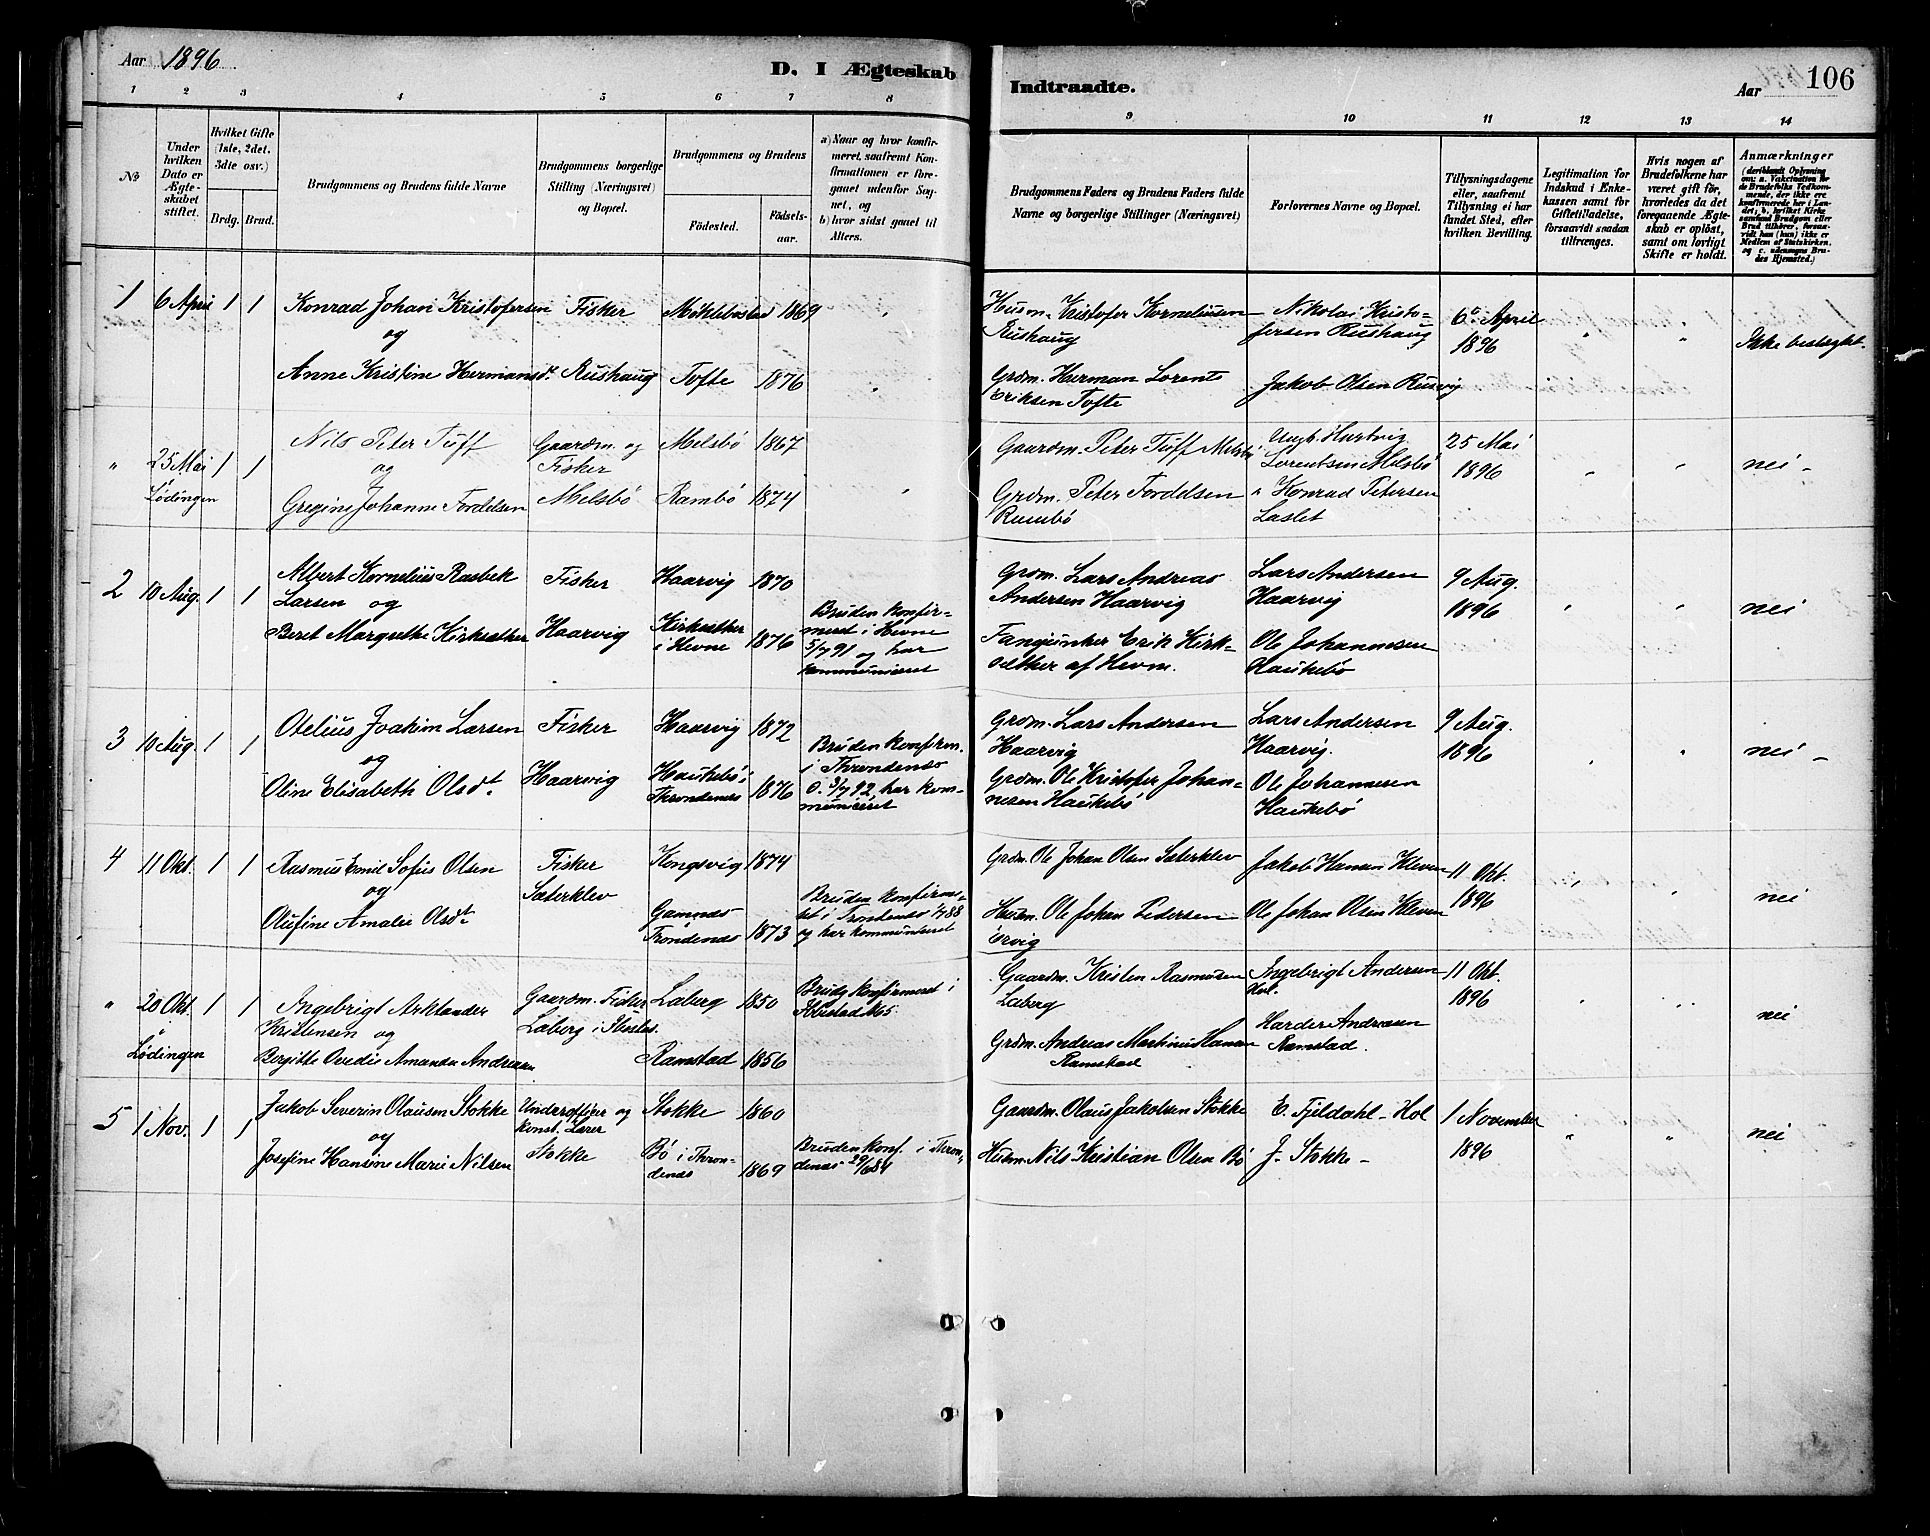 Aar 1896
D. I Ægteskab
Indtraadte.
Aar
106
1 2 3 4 5 6 7 8
9 10 11 12 13 14
No
Under hvilken Dato er Ægteskabet stiftet.
Hvilket Gifte (1ste, 2det, 3die osv.)
Brdg. Brud.
Brudgommens og Brudens fulde Navne
Brudgommens borgerlige Stilling (Næringsvei) og Bopæl.
Brudgommens og Brudens
Födested.
Födsels-aar.
a) Naar og hvor konfirmeret, saafremt Konfirmationen er foregaaet udenfor Sognet, og
b) hvor sidst gaaet til Alters.
Brudgommens Faders og Brudens Faders fulde Navne og borgerlige Stillinger (Næringsvei)
Forlovernes Navne og Bopæl.
Tillysningsdagene eller, saafremt Tillysning ei har fundet Sted, efter hvilken Bevilling.
Legitimation for Indskud i Enkekassen samt for Giftetilladelse, forsaavidt saadan tiltrænges.
Hvis nogen af Brudefolkene har været gift för, hvorledes da det foregaaende Ægteskab er oplöst, samt om lovligt Skifte er holdt.
Anmærkninger
(deriblandt Oplysning om: a. Vakcination for de Brudefolks Vedkommende, der ikke ere konfirmerede her i Landet; b. hvilket Kirkesamfund Brudgom eller Brud tilhörer, forsaavidt han (hun) ikke er Medlem af Statskirken, og c. udensogns Brudes Hjemsted.)
1 6 April 1 1 Konrad Johan Kristofersen Fisker Möklebostad 1869
og
Anne Kristine Hermansd. Rushaug Tofte 1876
Husm. Kristofer Korneliusen Nikolai Kristo- 6 April
Rushaug fersen Rushaug 1896 Ikke beslægt.
Grdm. Herman Lorents Jakob Olsen Rusvig
Eriksen Tofte
" 25 Mai 1 1 Nils Peter Tuff Gaardm. og Melsbö 1867
Lødingen og Fisker
Gregine Johanne Tordelsen Melsbö Rambö 1874
Gaardm. Peter Tuff Melsbö Ungk. Hartvig 25 Mai
Lorentsen Melsbö 1896 nei -
Grdm. Peter Tordelsen " Konrad Petersen
Rambö Laslet
2 10 Aug. 1 1 Albert Kornelius Rasbek Fisker Haarvig 1870
Larsen og
Beret Margrethe Kirksæther Haarvig Kirksæther i Hevne 1876
Bruden konfir-
meret i Hevne
5/7 91 og har
kommuniceret
Grdm. Lars Andreas Lars Andersen 9 Aug.
Andersen Haarvig Haarvig 1896 nei
Erik Kirk- Ole Johannesen
sæther af Hevne. Haukebö
3 10 Aug. 1 1 Otelius Joakim Larsen Fisker Haarvig 1872
og
Oline Elisabeth Olsdt. Haarvig Haukebö i Throndenes 1876
Bruden konfirm.
i Throndenes
har kom-
municeret
Grdm. Lars Andersen Lars Andersen 9 Aug.
Haarvig Haarvig. 1896 nei -
Grdm. Ole Kristofer Johan- Ole Johannesen
nesen Haukebö Haukebö
4 11 Okt. 1 1 Rasmus Emil Sofus Olsen Fisker Kongsvig 1874
og Sæterklev
Olufine Amalie Olsdt. Gamnes Trondenes 1873
Bruden konfirme-
ret i Trondenes
og har kommuniceret
Grdm. Ole Johan Olsen Sæterklev Jakob Hansen Kleven 11 Okt.
1896 nei
Husm. Ole Johan Pedersen Ole Johan Olsen Kleven
Ervig
" 20 Okt. 1 1 Ingebrigt Arktander Gaardm. Fisker Laberg 1850
Kristensen og Laberg i
Lødingen Bergitte Ovedie Amanda Andreasen Ramstad 1856
Brudg konfirmeret i
Ibbestad
Gaardm. Kristen Rasmussen Ingebrigt Andersen 11 Okt.
Laberg Hol. 1896 nei
Grdm. Andreas Martinus Hansen Harder Andreasen
Ramstad Ramstad.
5 1 Nov. 1 1 Jakob Severin Olausen Stokke Underofficer og Stokke 1860
og konst. Lærer
Josefine Hansine Marie Nilsen Stokke Bö i Thron-
denes 1869
Bruden konf. i Thron-
denes 29/6 84
Gaardm. Olaus Jakobsen Stokke E. Fjeldahl - Hol 1 November
Husm. Nils Kristian Olsen Bö J. Stokke - 1896 nei